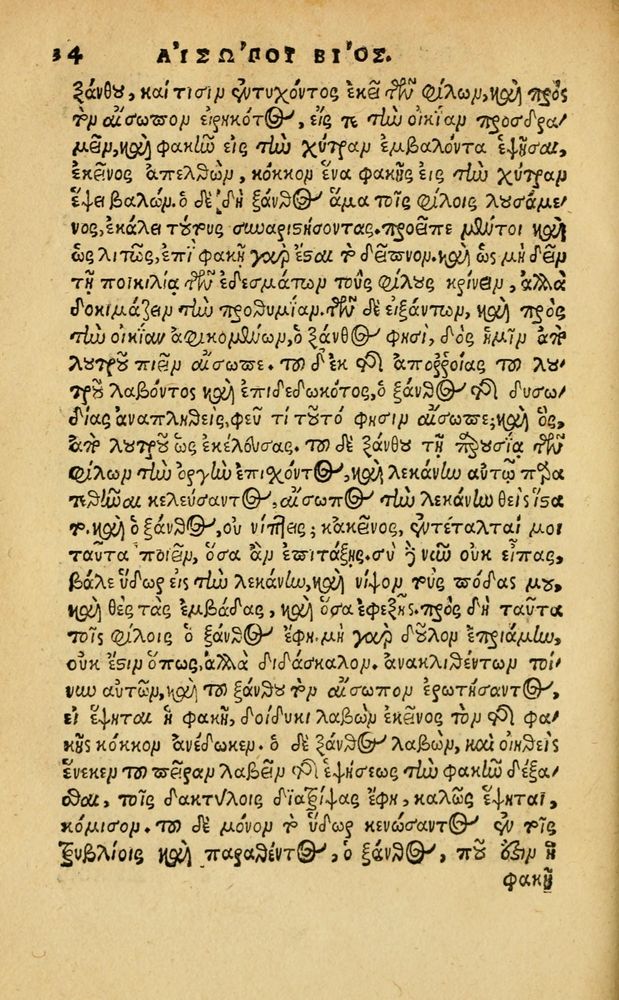 34 ΑἸΣΏΠΟΥ ΒΊΟΣ.
ξάνθου, καί τισιν ἐντυχόντος ἐκεῖ τῶν φίλων, καὶ πρὸς
τὸν αἴσωπον εἰρηκότος, εἴς τε τὴν οἰκίαν προσδρα-
μεῖν, καὶ φακῶ εἰς τὴν χύτραν ἐμβαλόντα ἑψῆσαι,
ἐκεῖνος ἀπελθὼν, κόκκον ἕνα φακῆς εἰς τὴν χύτραν
ἕψει βαλών. ὁ δὲ δὴ ξάνθος ἅμα τοῖς φίλοις λουσάμε-
νος, ἐκάλει τούτους συναριστήσοντας. προεῖπε μέντοι καὶ
ὡς λιτῶς, ἐπὶ φακῇ γὰρ ἔσται τὸ δεῖπνον. καὶ ὡς μὴ δεῖν
τῇ ποικιλίᾳ τῶν ἐδεσμάτων τοὺς φίλους κρίνειν, ἀλλὰ
δοκιμάζειν τὴν προθυμίαν. τῶν δὲ εἰξάντων, καὶ πρὸς
τὴν οἰκίαν ἀφικομένων, ὁ ξάνθος φησὶ, δὸς ἡμῖν ἀπὸ
λουτροῦ πιεῖν αἴσωπε. τοῦ δ' ἐκ τῆς ἀποῤῥοίας τοῦ λου-
τροῦ λαβόντος καὶ ἐπιδεδωκότος, ὁ ξάνθος τῆς δυσω-
δίας ἀναπλησθεὶς, φεῦ τί τοῦτό φησιν αἴσωπε; καὶ ὃς,
ἀπὸ λουτροῦ ὡς ἐκέλευσας. τοῦ δὲ ξάνθου τῇ παρουσίᾳ τῶν
φίλων τὴν ὀργὴν ἐπισχόντος, καὶ λεκάνην αὐτῷ παρα
τεθῆναι κελεύσαντος, αἴσωπος τὴν λεκάνην θεὶς ἵστα
το. καὶ ὁ ξάνθος, οὐ νίπτεις; κἀκεῖνος, ἐντέταλταί μοι
ταῦτα ποιεῖν, ὅσα ἂν ἐπιτάξῃς. σὺ δὲ νῦν οὐκ εἶπας,
βάλε ὕδωρ εἰς τὴν λεκάνην, καὶ νίψον τοὺς πόδας μου,
καὶ θὲς τὰς ἐμβάδας, καὶ ὅσα ἐφεξῆς. πρὸς δὴ ταῦτα
τοῖς φίλοις ὁ ξάνθος ἔφη. μὴ γὰρ δοῦλον ἐπριάμην,
οὐκ ἔστιν ὅπως, ἀλλὰ διδάσκαλον. ἀνακλιθέντων τοί-
νυν αὐτῶν, καὶ τοῦ ξάνθου τὸν αἴσωπον ἐρωτήσαντος,
εἰ ἕψηται ἡ φακῆ, δοίδυκι λαβὼν ἐκεῖνος τὸν τῆς φα-
κῆς κόκκον ἀνέδωκεν. ὁ δὲ ξάνθος λαβὼν, καὶ οἰηθεὶς
ἕνεκεν τοῦ πεῖραν λαβεῖν τῆς ἑψήσεως τὴν φακῶ δέξα-
σθαι, τοῖς δακτύλοις διατρίψας ἔφη, καλῶς ἕψηται,
κόμισον. τοῦ δὲ μόνον τὸ ὕδωρ κενώσαντος ἐν τοῖς
τρυβλίοις καὶ παραθέντος, ὁ ξάνθος, ποῦ ἐστιν ἡ
φακῆ